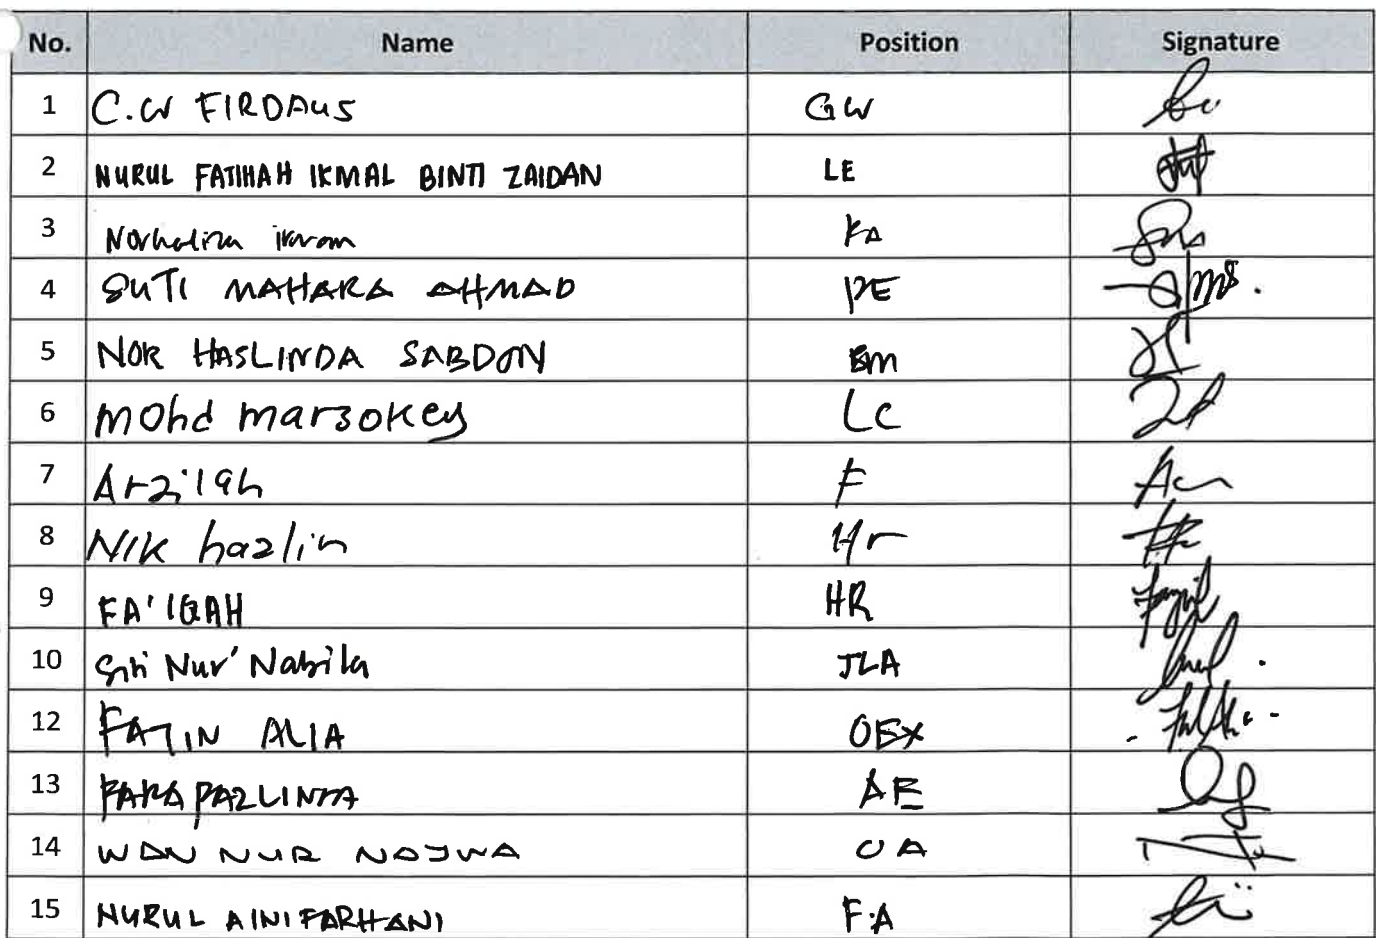 No. Name Position Signature
1 C.W FIRDAUS GW
2 NURUL FATIHAH IKMAL BINTI ZAIDAN LE
3 Norhaliza ikram FA
4 SUTI MAHARA AHMAD PE
5 NOR HASLINDA SABDON BM
6 Mohd marzokey LC
7 Arzilah F
8 NIK hazlin Hr
9 FA'IQAH HR
10 Siti Nur' Nabila JLA
12 FATIN ALIA OEX
13 FARA FAZLINTA AE
14 WAN NUR NAJWA OA
15 NURUL AINI FARHANI F.A